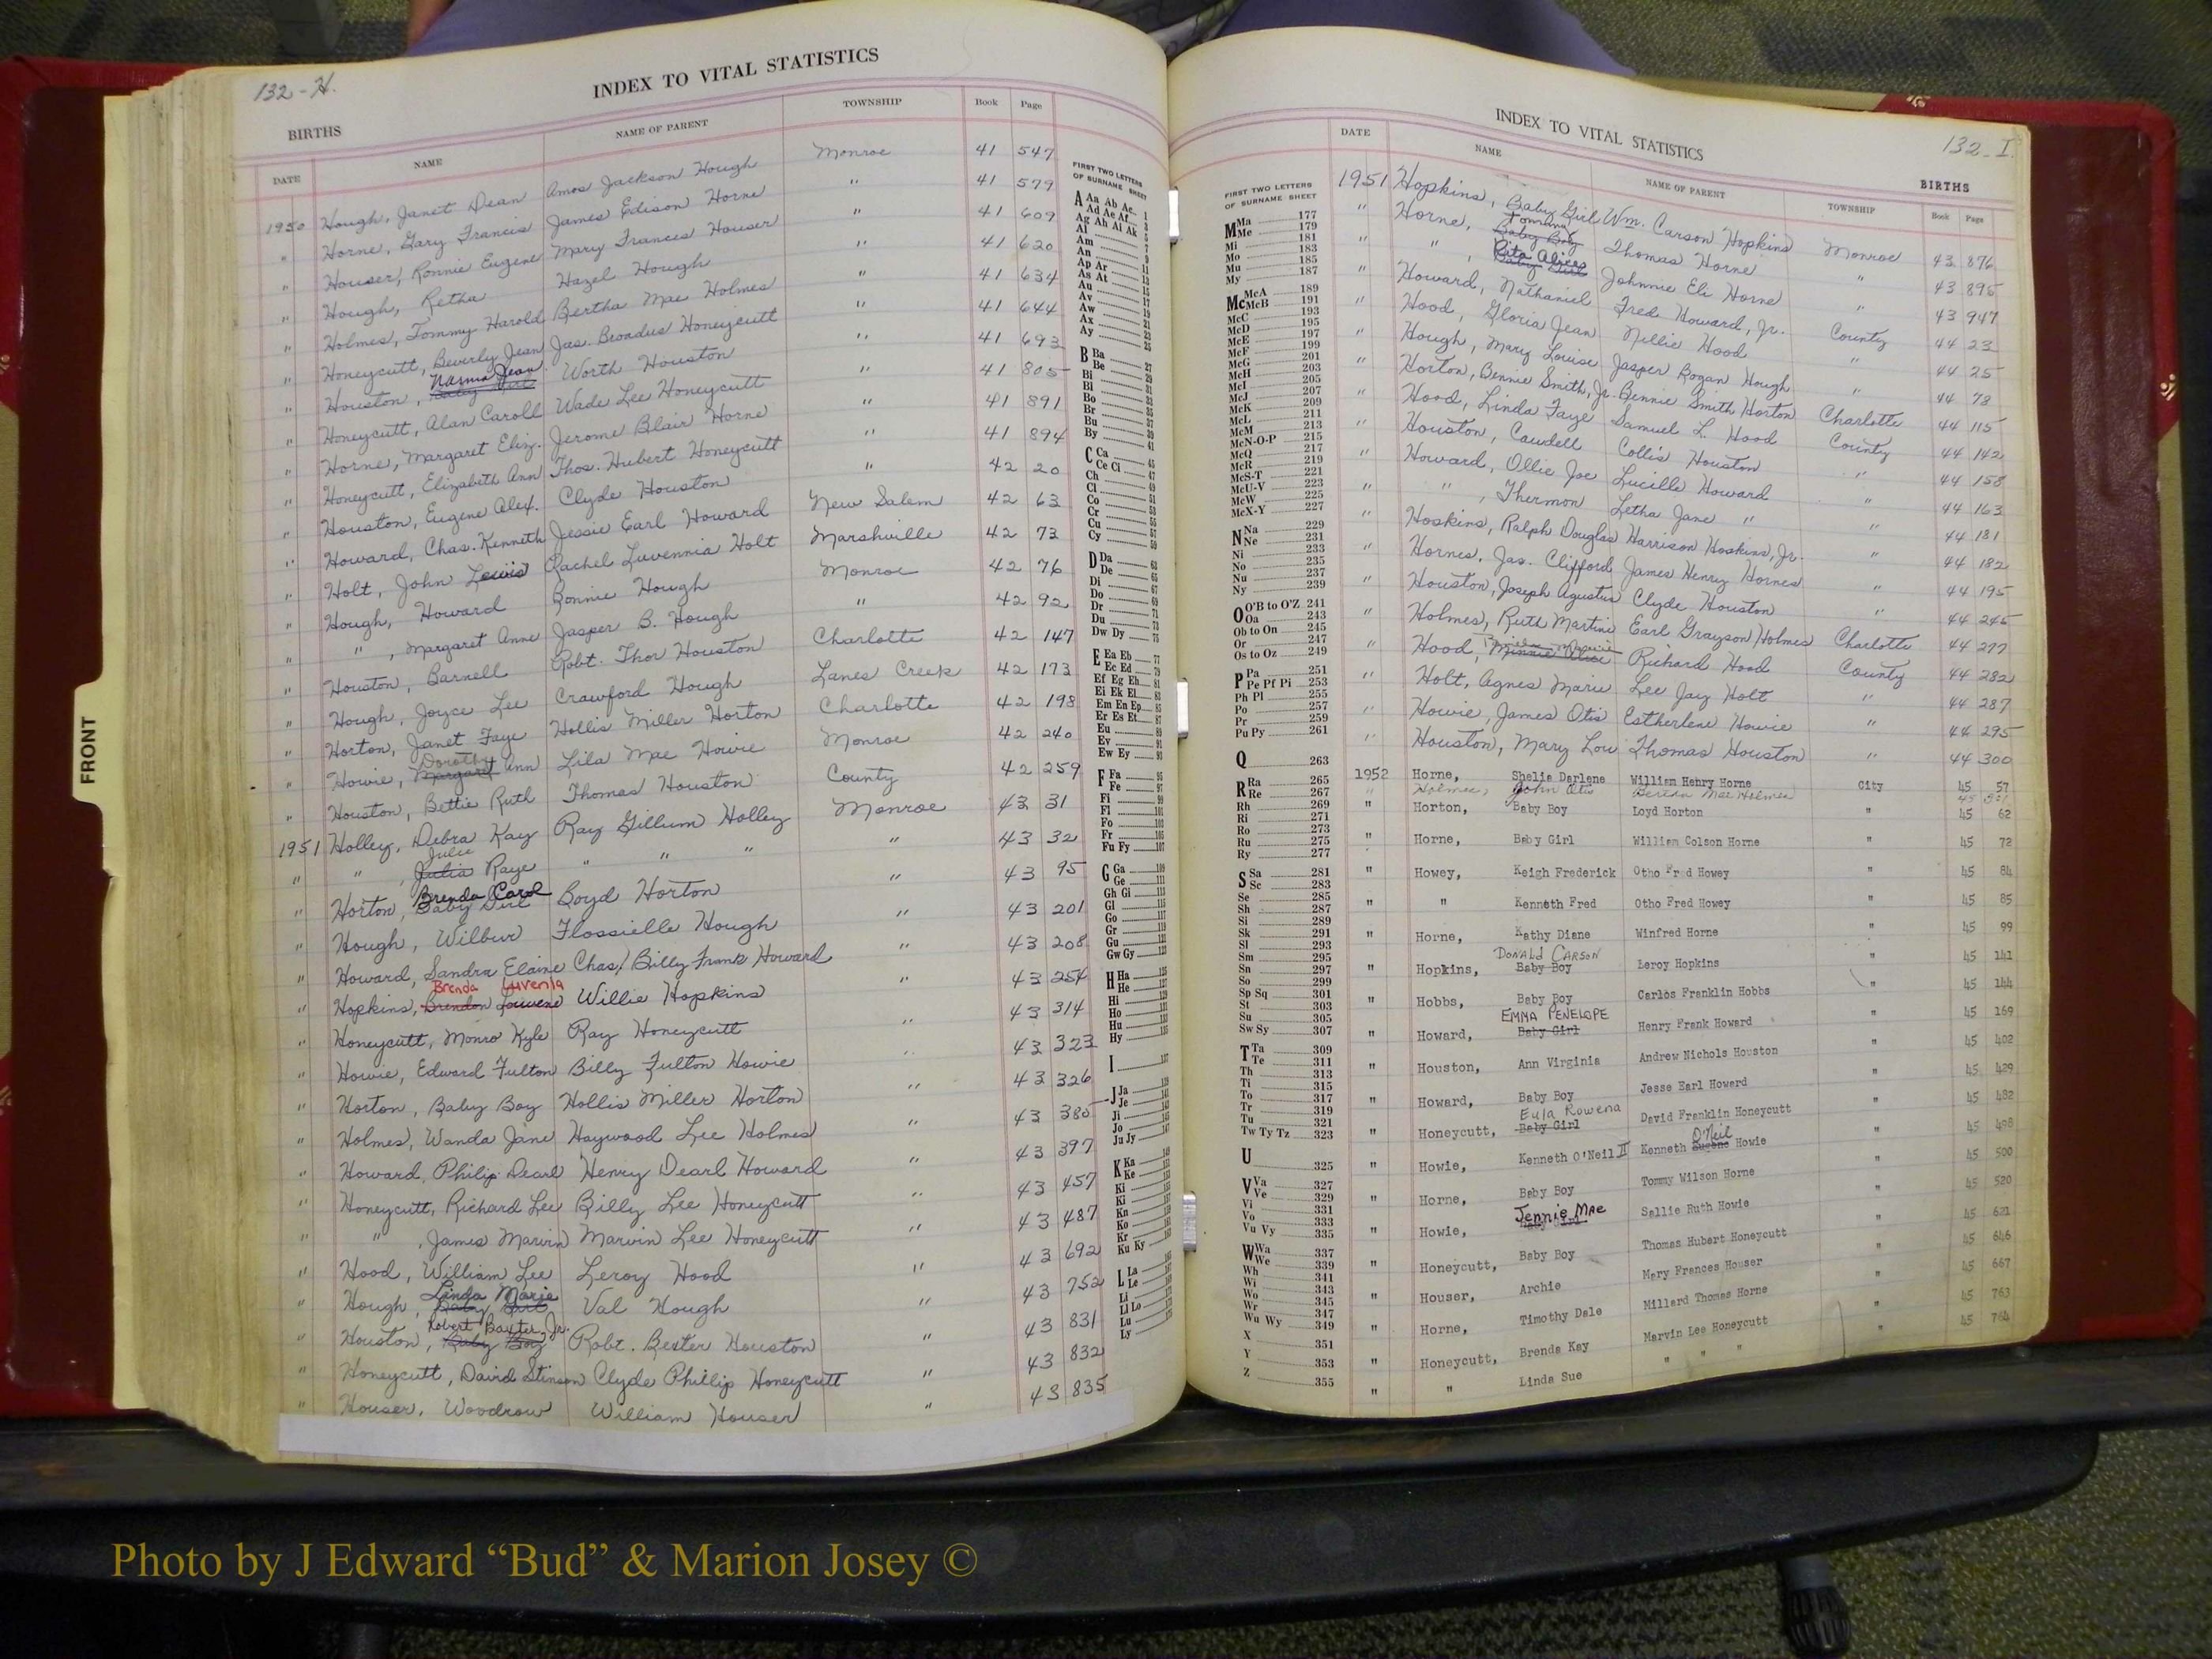 132-H.
INDEX TO VITAL STATISTICS
BIRTHS
DATE NAME NAME OF PARENT TOWNSHIP Book Page
1950 Hough, Janet Dean Amos Jackson Hough Monroe 41 547
" Horne, Gary Francis James Edison Horne " 41 579
" Houser, Ronnie Eugene Mary Frances Houser " 41 609
" Hough, Retha Hazel Hough " 41 620
" Holmes, Tommy Harold Bertha Mae Holmes " 41 634
" Honeycutt, Beverly Jean Jas. Broadus Honeycutt " 41 644
" Houston, Norma Jean Worth Houston " 41 693
" Honeycutt, Alan Caroll Wade Lee Honeycutt " 41 805
" Horne, Margaret Eliz. Jerome Blair Horne " 41 891
" Honeycutt, Elizabeth Ann Thos. Hubert Honeycutt " 41 894
" Houston, Eugene Alex. Clyde Houston " 42 20
" Howard, Chas. Kenneth Jessie Earl Howard New Salem 42 63
" Holt, John Lewis Rachel Luvennia Holt Marshville 42 73
" Hough, Howard Bonnie Hough Monroe 42 76
" " , Margaret Anne Jasper B. Hough " 42 92
" Houston, Barnell Robt. Thor Houston Charlotte 42 147
" Hough, Joyce Lee Crawford Hough Lanes Creek 42 173
" Horton, Janet Faye Hollis Miller Horton Charlotte 42 198
" Howie, Margaret Dorothy Ann Lila Mae Howie Monroe 42 240
" Houston, Bettie Ruth Thomas Houston County 42 259
1951 Holley, Debra Kay Ray Gillum Holley Monroe 43 31
" " , Julia Julie Raye " " " " 43 32
" Horton, Baby Girl Brenda Carol Boyd Horton " 43 95
" Hough, Wilbur Flossielle Hough " 43 201
" Howard, Sandra Elaine Chas/Billy Frank Howard " 43 208
" Hopkins, Brendon Louvene Brenda Luvenia Willie Hopkins " 43 254
" Honeycutt, Monro Kyle Ray Honeycutt " 43 314
" Howie, Edward Fulton Billy Fulton Howie " 43 323
" Horton, Baby Boy Hollis Miller Horton " 43 326
" Holmes, Wanda Jane Haywood Lee Holmes " 43 380
" Howard, Philip Dearl Henry Dearl Howard " 43 397
" Honeycutt, Richard Lee Billy Lee Honeycutt " 43 457
" " , James Marvin Marvin Lee Honeycutt " 43 487
" Hood, William Lee Leroy Hood " 43 692
" Hough, Baby Girl Linda Marie Val Hough " 43 752
" Houston, Baby Boy Robert Baxter Jr. Robt. Bexter Houston " 43 831
" Honeycutt, David Stinson Clyde Phillip Honeycutt " 43 832
" Houser, Woodrow William Houser " 43 835
FIRST TWO LETTERS
OF SURNAME SHEET
A Aa Ab Ac 1
Ad Ae Af
Ag Ah Ai Ak
Al
Am
An
Ap Ar 11
As At 13
Au 15
Av 17
Aw 19
Ax 21
Ay 23
B Ba
Be 27
Bi 29
Bl 31
Bo 33
Br 35
Bu 37
By
C Ca
Ce Ci 45
Ch 47
Cl 49
Co 51
Cr 53
Cu 55
Cy
D Da
De 65
Di 67
Do 69
Dr 71
Du 73
Dw Dy 75
E Ea Eb 77
Ec Ed 79
Ef Eg Eh 81
Ei Ek El 83
Em En Ep 85
Er Es Et 87
Eu 89
Ev 91
Ew Ey 93
F Fa 95
Fe 97
Fi 99
Fl 101
Fo 103
Fr 105
Fu Fy 107
G Ga 109
Ge 111
Gh Gi 113
Gl 115
Go 117
Gr 119
Gu 121
Gw Gy 123
H Ha 125
He 127
Hi 129
Ho 131
Hu 133
Hy 135
I 137
J Ja 139
Je 141
Ji 143
Jo 145
Ju Jy 147
K Ka 149
Ke
Ki
Ki
Kn
Ko
Kr
Ku Ky
L La
Le
Li
Ll Lo
Lu
Ly
FRONT
INDEX TO VITAL STATISTICS
132-I.
BIRTHS
DATE NAME NAME OF PARENT TOWNSHIP Book Page
1951 Hopkins, Baby Girl Wm. Carson Hopkins Monroe 43 876
" Horne, Baby Boy Thomas Horne " 43 895
" " , Baby Girl Rita Alices Johnnie Eli Horne " 43 947
" Howard, Nathaniel Fred Howard, Jr. County 44 23
" Hood, Gloria Jean Nellie Hood " 44 25
" Hough, Mary Louise Jasper Rogan Hough " 44 78
" Horton, Bennie Smith, Jr. Bennie Smith Horton Charlotte 44 115
" Hood, Linda Faye Samuel L. Hood County 44 142
" Houston, Caudell Collis Houston " 44 158
" Howard, Ollie Joe Lucille Howard " 44 163
" " , Thermon Letha Jane " " 44 181
" Hoskins, Ralph Douglas Harrison Hoskins, Jr. " 44 182
" Hornes, Jas. Clifford James Henry Hornes " 44 195
" Houston, Joseph Agustus Clyde Houston " 44 245
" Holmes, Ruth Martine Earl Grayson Holmes Charlotte 44 277
" Hood, Minnie Alice Richard Hood County 44 282
" Holt, Agnes Marie Lee Jay Holt " 44 287
" Howie, James Otis Estherlene Howie " 44 295
" Houston, Mary Lou Thomas Houston " 44 300
1952 Horne, Shelia Darlene William Henry Horne City 45 57
" Holmes, John Otis Mae Holmes 45
" Horton, Baby Boy Loyd Horton " 45 62
" Horne, Baby Girl William Colson Horne " 45 72
" Howey, Keigh Frederick Otho Fred Howey " 45 84
" " Kenneth Fred Otho Fred Howey " 45 85
" Horne, Kathy Diane Winfred Horne " 45 99
" Hopkins, DONALD CARSON Baby Boy Leroy Hopkins " 45 141
" Hobbs, Baby Boy Carlos Franklin Hobbs " 45 144
" Howard, EMMA PENELOPE Baby Girl Henry Frank Howard " 45 169
" Houston, Ann Virginia Andrew Nichols Houston " 45 402
" Howard, Baby Boy Jesse Earl Howard " 45 429
" Honeycutt, Eula Rowena Baby Girl David Franklin Honeycutt " 45 482
" Howie, Kenneth O'Neil II Kenneth Eugene O'Neil Howie " 45 498
" Horne, Baby Boy Tommy Wilson Horne " 45 500
" Howie, Jennie Mae Baby Girl Sallie Ruth Howie " 45 520
" Honeycutt, Baby Boy Thomas Hubert Honeycutt " 45 621
" Houser, Archie Mary Frances Houser " 45 646
" Horne, Timothy Dale Millard Thomas Horne " 45 667
" Honeycutt, Brenda Kay Marvin Lee Honeycutt " 45 763
" " Linda Sue " " " " 45 764
FIRST TWO LETTERS
OF SURNAME SHEET
M Ma 177
Me 179
Mi 181
Mo 183
Mu 185
My 187
Mc McA 189
McB 191
McC 193
McD 195
McE 197
McF 199
McG 201
McH 203
McI 205
McJ 207
McK 209
McL 211
McM 213
McN-O-P 215
McQ 217
McR 219
McS-T 221
McU-V 223
McW 225
McX-Y 227
N Na 229
Ne 231
Ni 233
No 235
Nu 237
Ny 239
O O'B to O'Z 241
Oa 243
Ob to On 245
Or 247
Os to Oz 249
P Pa 251
Pe Pf Pi 253
Ph Pl 255
Po 257
Pr 259
Pu Py 261
Q 263
R Ra 265
Re 267
Rh 269
Ri 271
Ro 273
Ru 275
Ry 277
S Sa 281
Sc 283
Se 285
Sh 287
Si 289
Sk 291
Sl 293
Sm 295
Sn 297
So 299
Sp Sq 301
St 303
Su 305
Sw Sy 307
T Ta 309
Te 311
Th 313
Ti 315
To 317
Tr 319
Tu 321
Tw Ty Tz 323
U 325
V Va 327
Ve 329
Vi 331
Vo 333
Vu Vy 335
W Wa 337
We 339
Wh 341
Wi 343
Wo 345
Wr 347
Wu Wy 349
X 351
Y 353
Z 355
Photo by J Edward “Bud” & Marion Josey ©